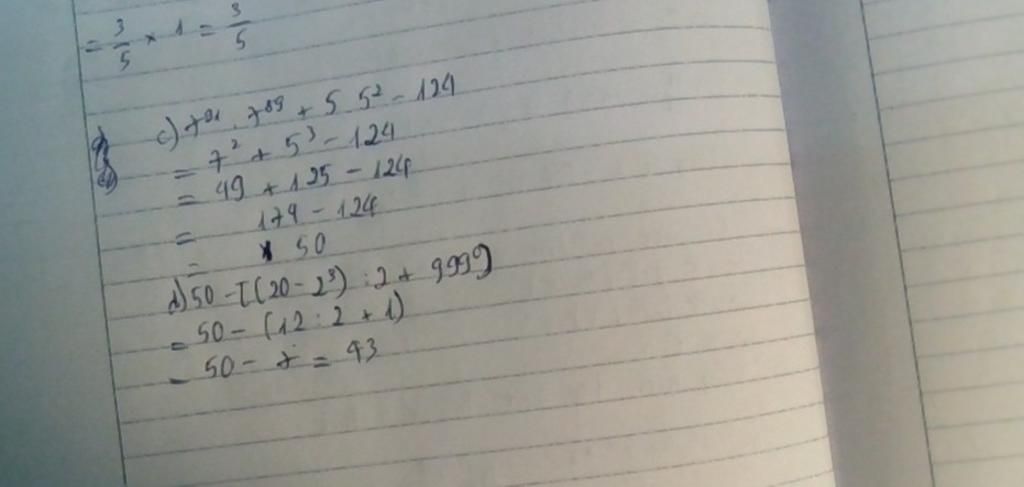 = 3/5 × 1 = 3/5
c) 7⁹¹ . 7⁸⁹ + 5 5² - 124
= 7² + 5³ - 124
= 49 + 125 - 124
= 174 - 124
= 50
d) 50 - [(20 - 2³) : 2 + 999⁰]
= 50 - (12 : 2 + 1)
= 50 - 7 = 43